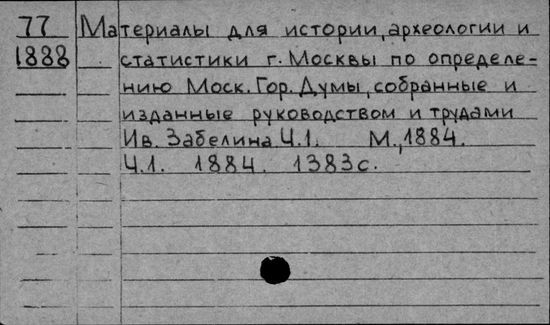 77 Материалы для истории, археологии и
1888 статистики г. Москвы по определе-
нию Моск. Гор. Думы, собранные и
изданные руководством и трудами
Ив. Забелина Ч.1. М., 1884.
Ч.1. 1884. 1383с.